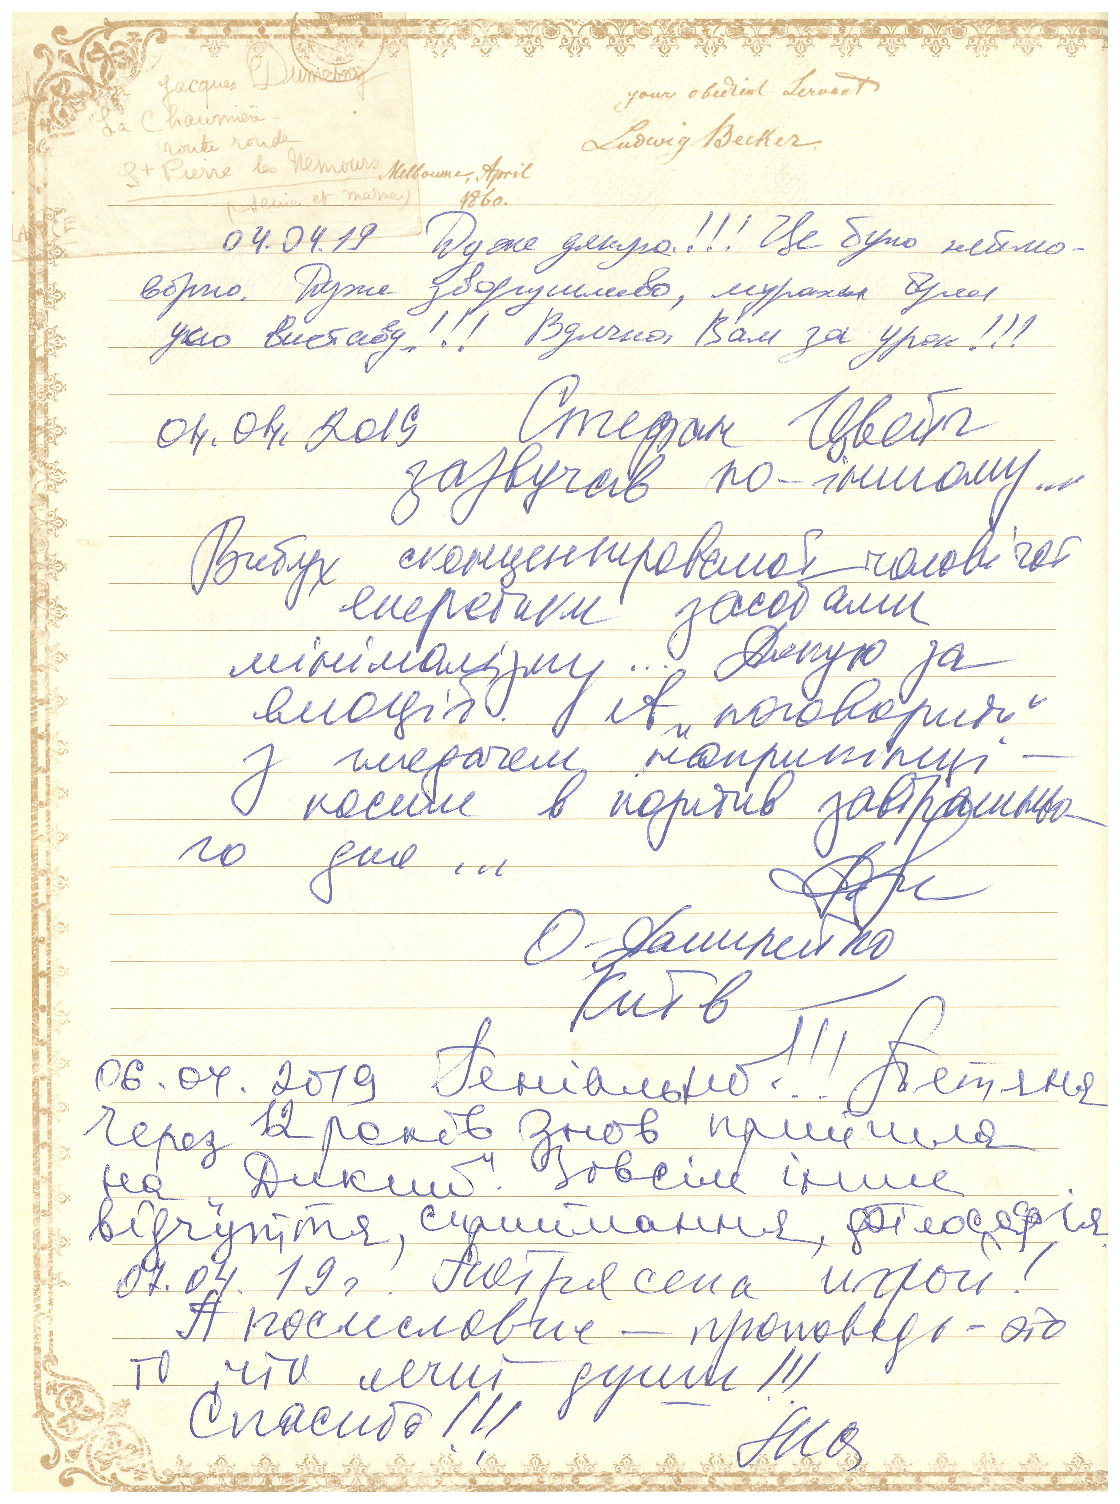 Jacques Dumesny
La Chaumière
route ronde
St Pierre les Nemours
(Seine et Marne)
your obedient Servant
Ludwig Becker.
Melbourne, April
1860.
04.04.19 Дуже дякую!!! Це було неймо-
вірно. Дуже зворушливо, мурахи були
усю виставу!!! Вдячна Вам за урок!!!
04.04.2019 Стефан Цвейг
зазвучав по-іншому...
Вибух сконцентрованої чоловічої
енергетики засобами
мінімалізму... Дякую за
емоції. А „поговорити“
з глядачем наприкінці —
посил в позитив завтрашньо-
го дня...
О.
Київ
06.04.2019 Геніально!!! Тетяна
Через 12 років знов прийшла
на „Дикий“. Зовсім інше
відчуття, сприймання, філософія
07.04.19г. Потрясена игрой!
А послесловие — проповедь — это
то что лечит души!!!
Спасибо!!!